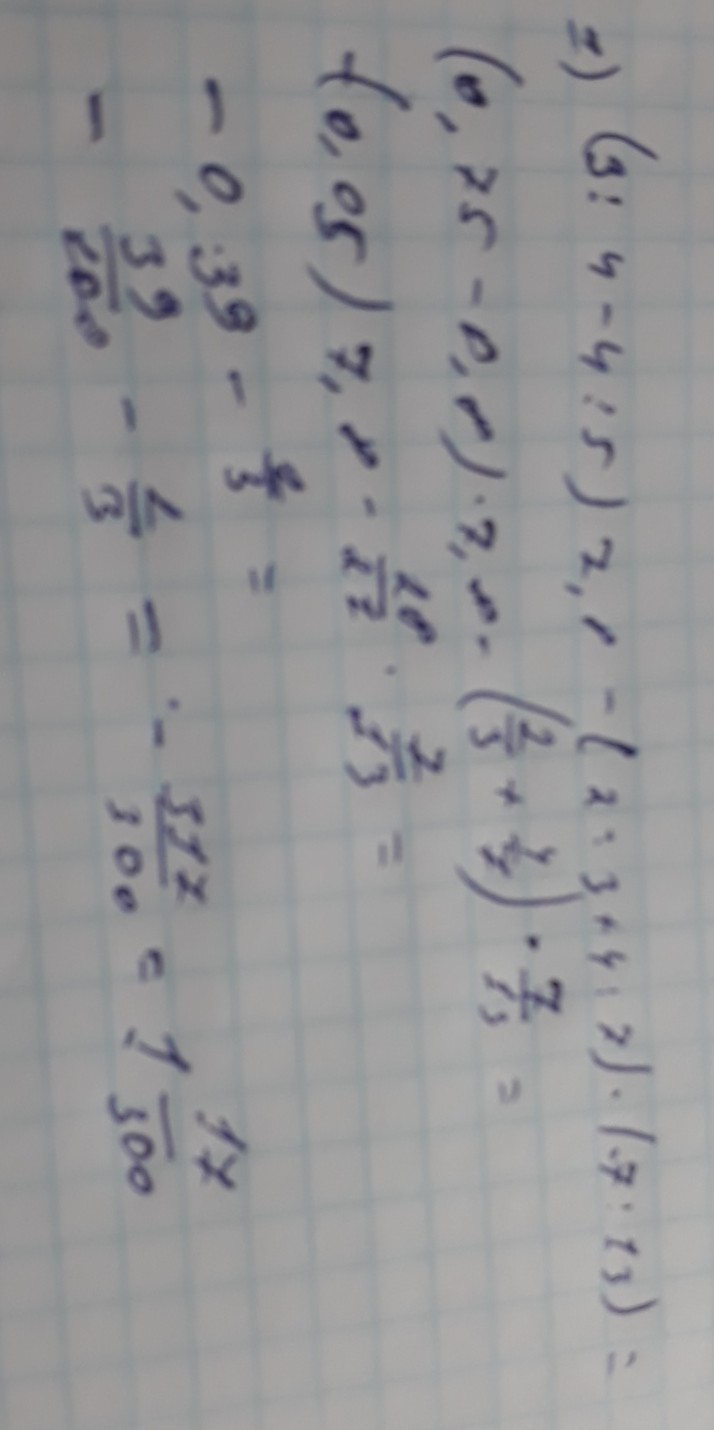 1) (3 : 4 - 4 : 5) 7,8 - (2 : 3 + 4 : 7) · (7 : 13) =
(0,75 - 0,8) · 7,8 - (2/3 + 4/7) · 7/13 =
-(0,05) 7,8 - 26/21 · 7/13 =
- 0,39 - 2/3 =
- 39/100 - 2/3 = - 317/300 = 1 17/300